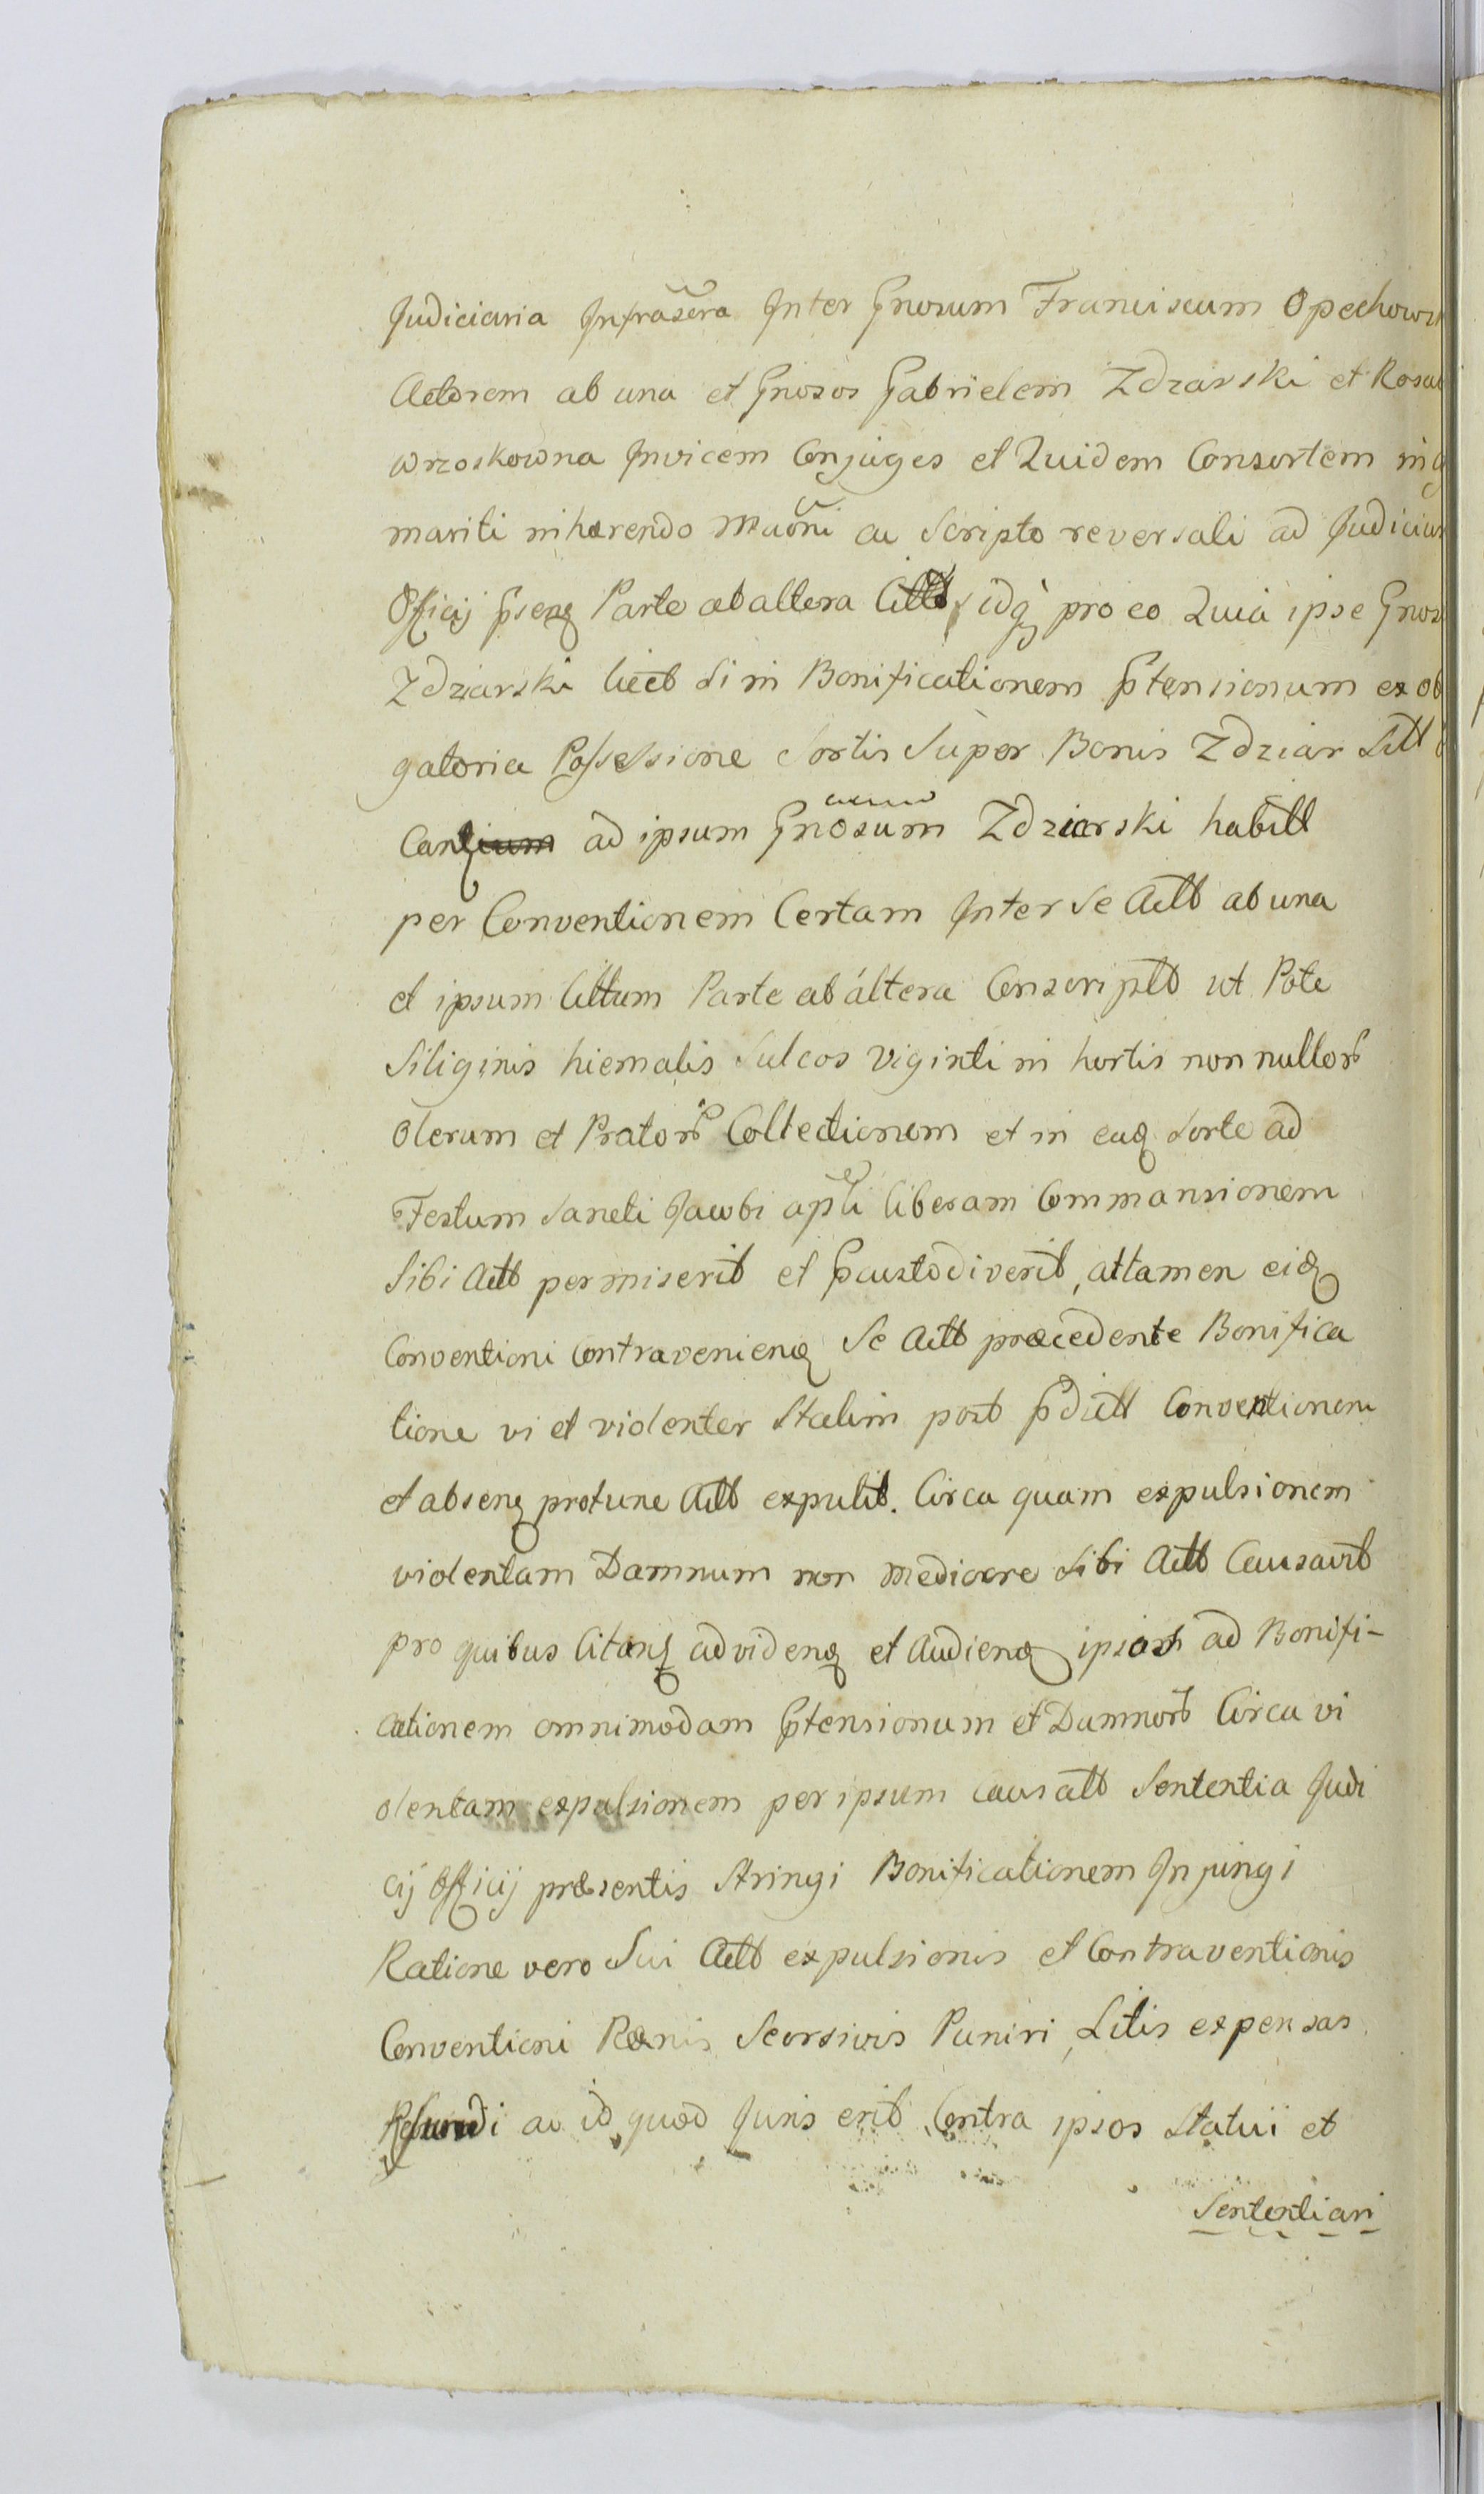 Judiciaria Infrascra Inter Gnosum Franciscum Opechows
Actorem ab una et Gnosos Gabrielem Zdzarski et Rosal
Wrzoskowna Invicem Conjuges et Quidem Consortem in
mariti inhærendo Muõni cu Scripto reversali ad Judicium
Officij psenq Parte ab altera Cittt idq pro eo Quia ipse Gnos
Zdziarski liectt Si in Bonificationem ptensionum ex ob
gatoria Possessione Sortis Super Bonis Zdziar Sitt
ad ipsum Gnosum Zdziarski habitt
per Conventionem Certam Inter Se Actt ab una
et ipsum Cittum Parte ab altera Conscriptt ut Pote
Siliginis hiemalis Sulcos Viginti in hortis non nullorb
Olerum et Pratorb Collectionem et in eaq Sorte ad
Festum Sancti Jacobi apli liberam Commansionem
Sibi Actt permiserit et pcustodiverit, attamen eiq
Conventioni Contravenienq Se Actt præcedente Bonifica
tione vi et violenter Statim post pdictt Conventionem
et absenq protunc Actt expulit. Circa quam expulsionem
violentam Damnum non mediocre Sibi Actt Causavit
pro quibus Citanq ad videnq et Audienq ipsos ad Bonifi-
cationem omnimodam ptensionum et Damnorb Circa vi
olentam expulsionem per ipsum causatt Sententia Judi
cij Officij præsentis Stringi Bonificationem Injungi
Ratione vero Sui Actt expulsionis et Contraventionis
Conventioni Pænis Seorsivis Puniri, Litis expensas
Refundi ac id quod Juris erit Contra ipsos Statui et
Sententiari